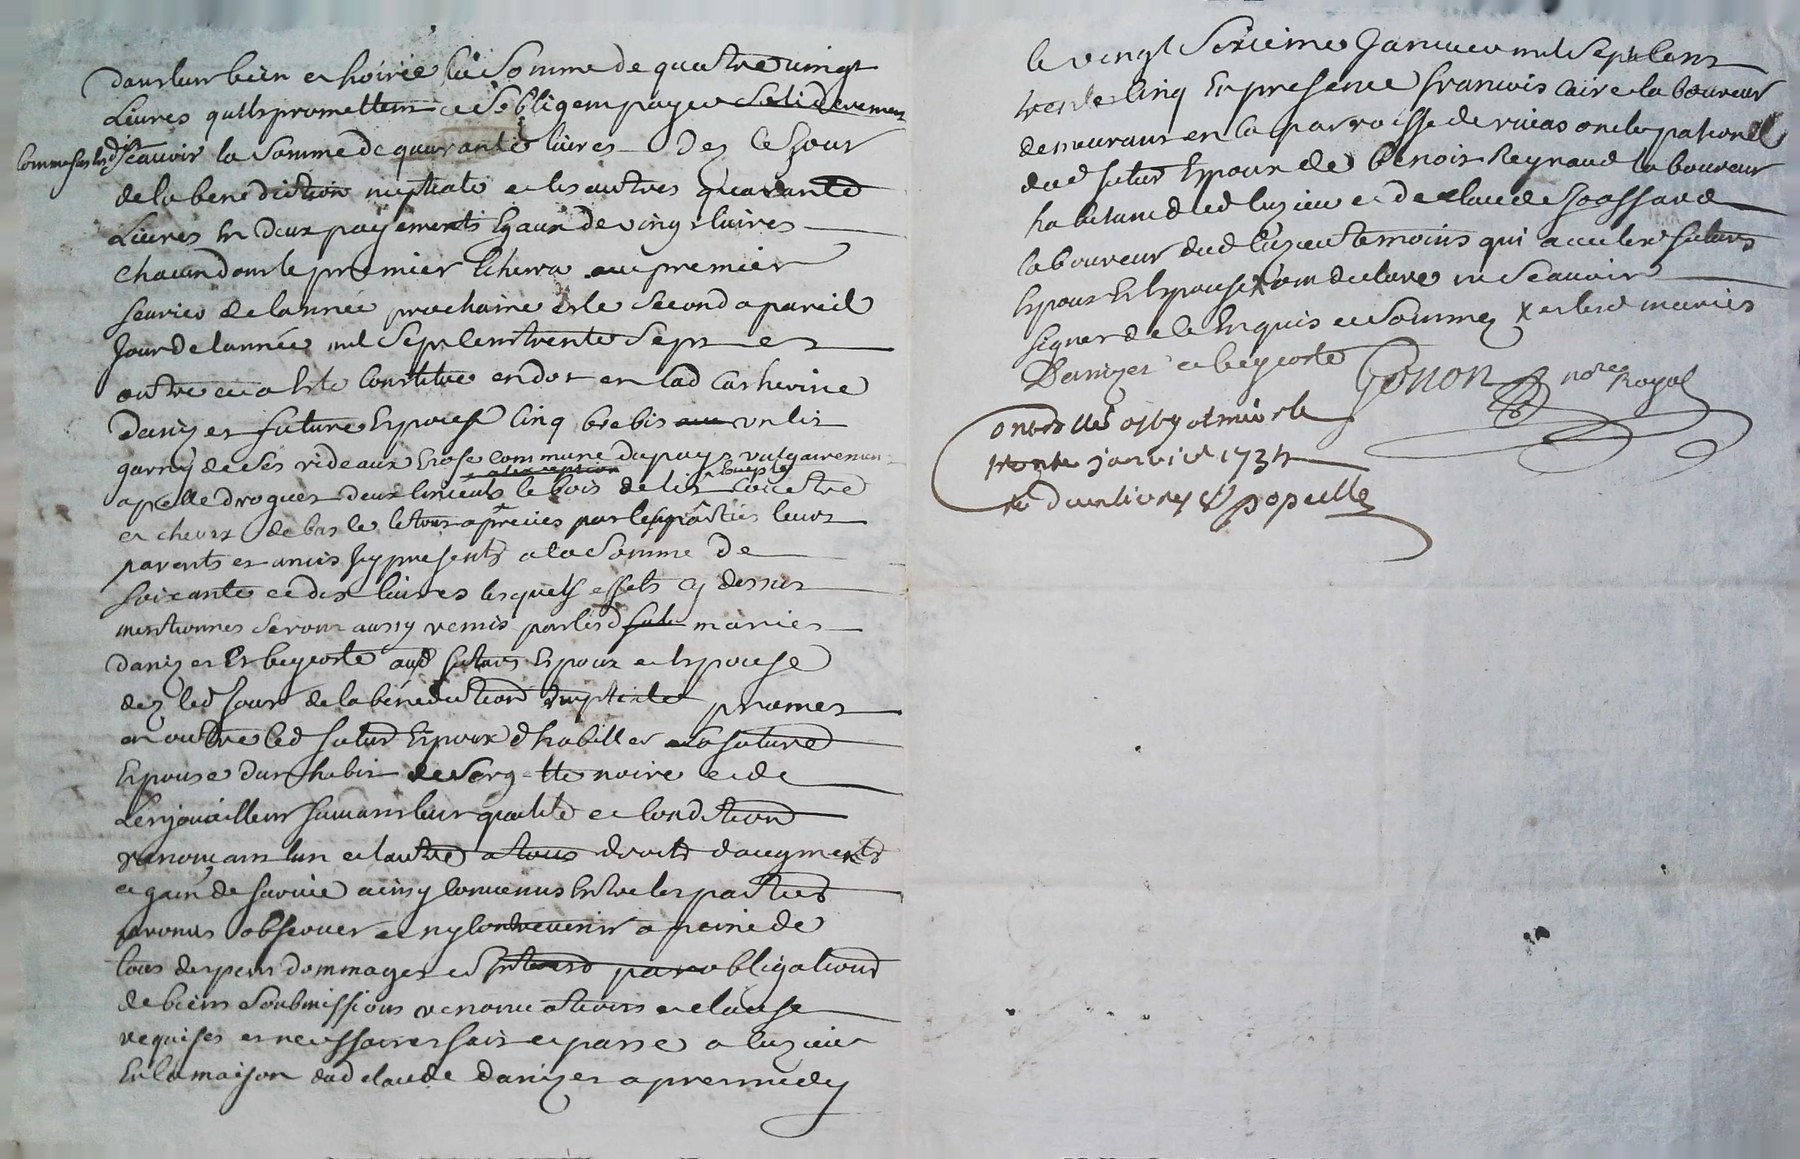 dans leur bien et hoirie la somme de quatre vingt
Livres quils promettent et sobligent payer solidairement
comme sus est dit
scavoir la somme de quarante livres dez le jour
de la benediction nuptiale et les autres quarante
Livres en deux payements Egaux de vingt livres
chacun dont le premier Echera au premier
fevrier de lannée prochaine et le second a pareil
Jour de lannée mil sept cent trente sept et
outre ce a Esté Constitué en dot en lad Catherine
Danizet future Epouse Cinq brebis un lit
garny de ses rideaux commune du pays vulgairement
apellé droguet deux linceuls le bois de lit
et de bas le tout apreciés par les parties leurs
parents et amis Icy presents a la somme de
soixante et dix livres lesquels effets cy dessus
mentionnes seront aussy remis par lesd mariés
Danizet et begeoste ausd futurs Epoux et Epouse
dez led Jour de la benediction nuptiale promet
en outre led futur Epoux dhabiller sa future
Epouse dun habit de sergette noire et de
Lenjouailler suivant leur qualité et condition
renonçant lun et lautre a tous droits daugments
et gain de survie ainsy convenus Entre les parties
promis observer et ny contrevenir a peine de
tous despens dommages et Interest par obligations
de biens soubmissions renonciations et clause
requises et necessaires fait et passé a luzieu
En la maison dud claude danizet apres midy
le vingt sixieme Janvier mil sept cent
trente Cinq En presence francois Caire laboureur
demeurant en la parroisse de rivas oncle paternel
dud futur Epoux de Benoit Reynaud laboureur
habitant dud luzieu et de claude Joassard
laboureur dud luzieu temoins qui avec les futurs
Epoux Et Epouse x ont declaré ne scavoir
signer de ce Enquis et sommez x et lesd mariés
Danizet et begeoste Gonon nore Royal
trente janvier 1735